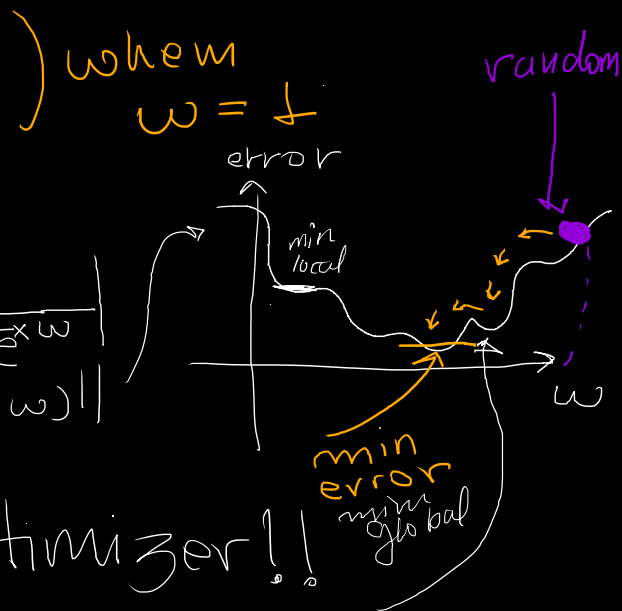 ) whem
w = 1
random
error
min
local
e^xw
w)||
w
min
error
mim
global
timizer!!